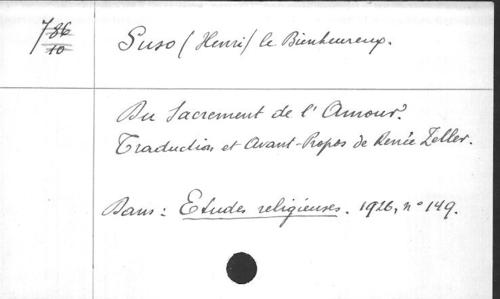 7 86/10
Suso (Henri) le Bienheureux.
Du Sacrement de l'Amour.
Traduction et Avant-Propos de Renée Zeller.
Dans : Etudes religieuses. 1926, n° 149.